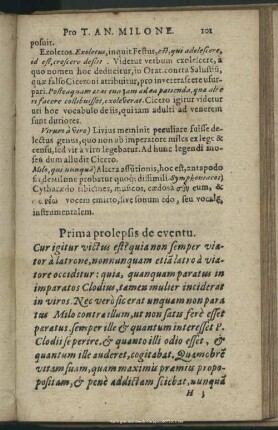 Pro T. AN. MILONE. 101
posuit.
Exoletos. Exoletus, inquit Festus, est, qui adolescere,
id est, crescere desijt. Videtur verbum exolescere, a
quo nomen hoc deducitur, in Orat. contra Salustiũ,
quæ falso Ciceroni attribuitur, pro inveterascere usur-
pari. Postea quam
si facere collibuisset, exoleverat. Cicero igitur videtur
uti hoc vocabulo de ijs, qui iam adulti ad venerem
sunt duriores.
Virum à viro) Livius meminit peculiare fuisse de-
lectus genus, quo non ab imperatore miles ex lege &
censu, sed vir à viro legebatur. Ad hunc legendi mo-
dum alludit Cicero.
Milo, qui nunquã) Altera assũtionis, hoc est, antapodo
sis, de Milone probatur quoq; dissimili. Symphoniacos)
Cytharœdo tibicines, musicos,
vocem emitto, sive sonum edo, seu vocalẽ,
instrumentalem.
Prima prolepsis de eventu.
Cur igitur victus est? quia non semper via-
tor à latrone, nonnunquam etiã latro à via-
tore occiditur: quia, quanquam paratus in
imparatos Clodius, tamen mulier inciderat
in viros. Nec verò sic erat unquam non para
tus Milo contra illum, ut non satis ferè esset
paratus. semper ille & quantum interesset P.
Clodij se perire. & quanto illi odio esset, &
quantum ille auderet, cogitabat. Quamobrẽ
vitam suam, quam maximis præmijs propo-
positam, & penè addictam sciebat, nunquã
H 5